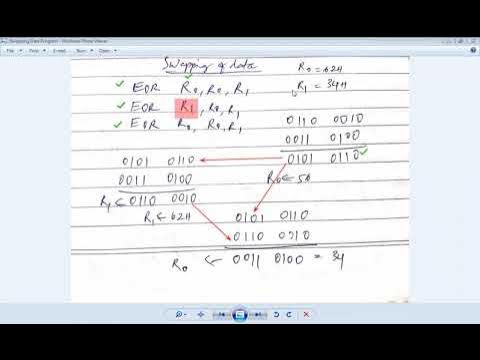 Swapping Data Program - Windows Photo Viewer
File Print E-mail Burn Open
Swapping of data
R0 = 62H
R1 = 34H
EOR R0, R0, R1
EOR R1, R0, R1
EOR R0, R0, R1
0110 0010
0011 0100
0101 0110
0101 0110
0011 0100
R1 ← 0110 0010
R1 ← 62H
R0 ← 56
0101 0110
0110 0010
R0 ← 0011 0100 = 34